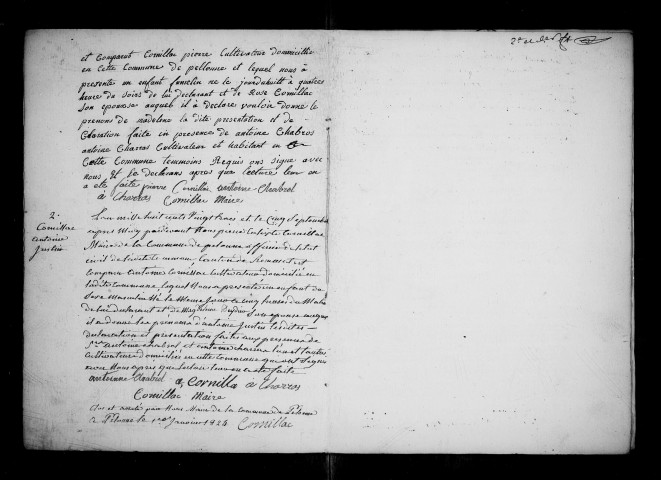 et Comparut Cornillac pierre Cultivateur domicillie
en Cette Commune de pellonne et lequel nous à
presenté un enfant femelin né le jourduhuitt à quatres
heure du soirs de lui declarant et de Rose Cornillac
son epouse auquel il à declaré vouloir donné le
prenons de madelene la dite presentation et de
Claration faite en presence de antoine Chabros
antoine Charras Cultivateur et habitant en
Cette Commune temmoins Requis ons signé avec
nous et le declarans apres que lecture leur en
a eté faite pierre Cornillac antoine Chabrol
a Charras Cornillac Maire
2.
Cornillac
antoine
Justin
L'an mille huit cents vingt trois et le cinq Septembre
apres Midy pardevant Nous pierre Cornillac
Maire de la Commune de pelonne officier de l'etat
civil de Canton de Remusat est
comparu antoine Cornillac Cultivateur domicilié en
ladite commune, lequel Nous a presenté un enfant du
Sexe Masculin Né le Meme Jour a cinq heures du Matin
de lui declarant et de Magdelaine Son epouse auquel
il a donné les prenoms d'antoine Justin lesdites
declaration et presentation faites en presence de
antoine chabrol et antoine charras
cultivateurs domiciliés en cette commune qui ont Signé
avec Nous apres que lecture leur en a eté faite
antoinne Chabrol a Cornilla a Charras
Cornillac Maire
Clos et arreté par Nous Maire de la commune de Pelonne
a Pelonne le 1er Janvier 1824 Cornillac